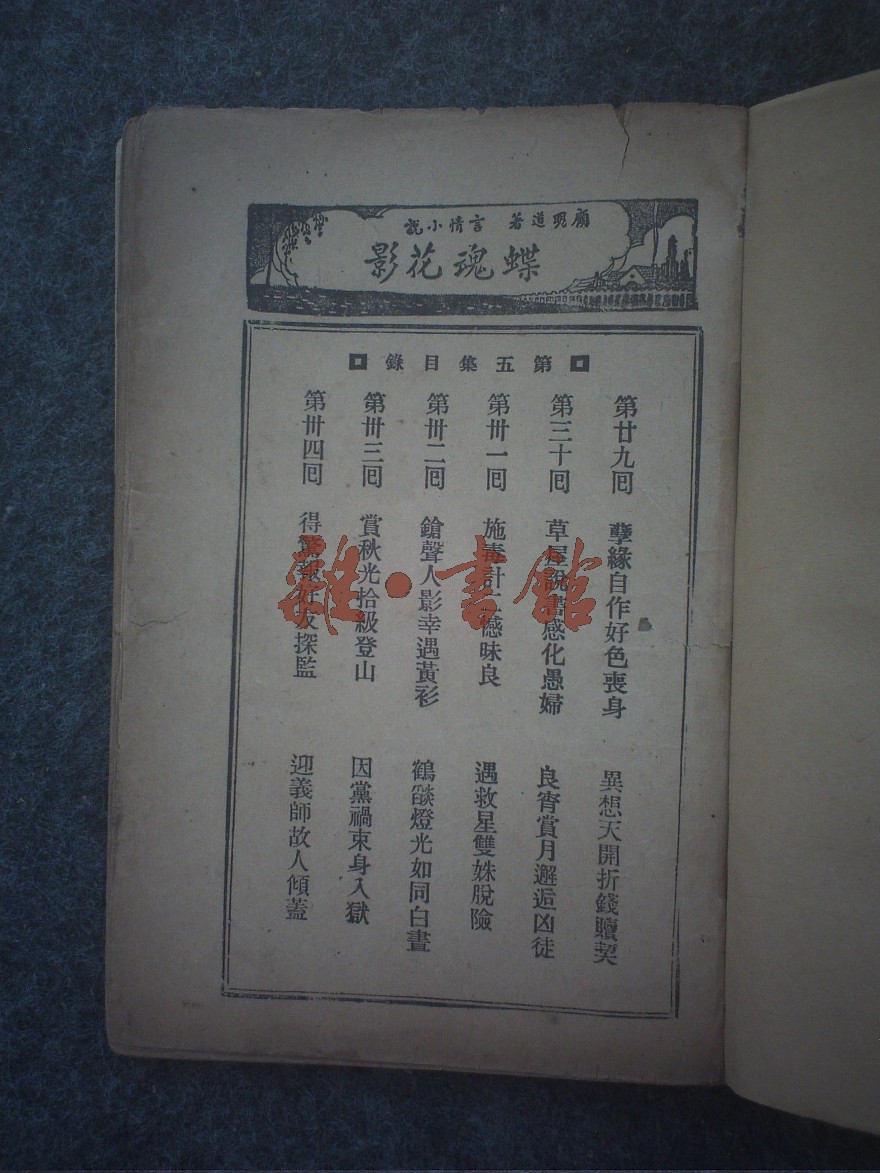 顧明道著 言情小說
蝶魂花影
第五集目錄
第廿九囘 孽緣自作好色喪身 異想天開折錢贖契
第三十囘 草屋說書感化愚婦 良宵賞月邂逅凶徒
第卅一囘 施毒計二憾昧良 遇救星雙姝脫險
第卅二囘 鎗聲人影幸遇黃衫 鶴燄燈光如同白晝
第卅三囘 賞秋光拾級登山 因黨禍束身入獄
第卅四囘 得驚報好友探監 迎義師故人傾蓋
雜·書館